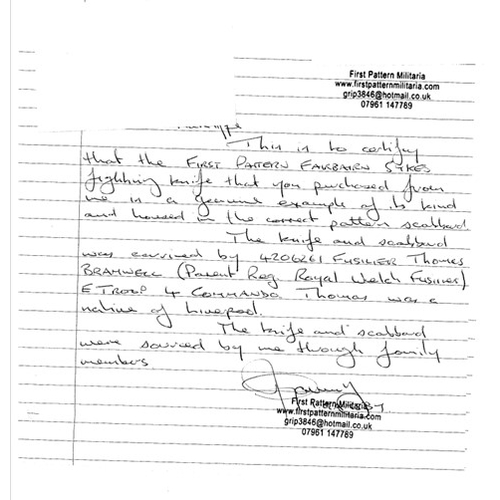 First Pattern Militaria
www.firstpatternmilitaria.com
grip3846@hotmail.co.uk
07961 147789
This is to certify
that the FIRST PATTERN FAIRBAIRN SYKES
fighting knife that you purchased from
me is a genuine example of its kind
and housed in the correct pattern scabbard
The knife and scabbard
was carried by 4206261 FUSILIER THOMAS
BRAMWELL (Parent Reg. Royal Welch Fusiliers)
E TROOP 4 COMMANDO Thomas was a
native of Liverpool.
The knife and scabbard
were sourced by me through family
members
First Pattern Militaria
www.firstpatternmilitaria.com
grip3846@hotmail.co.uk
07961 147789